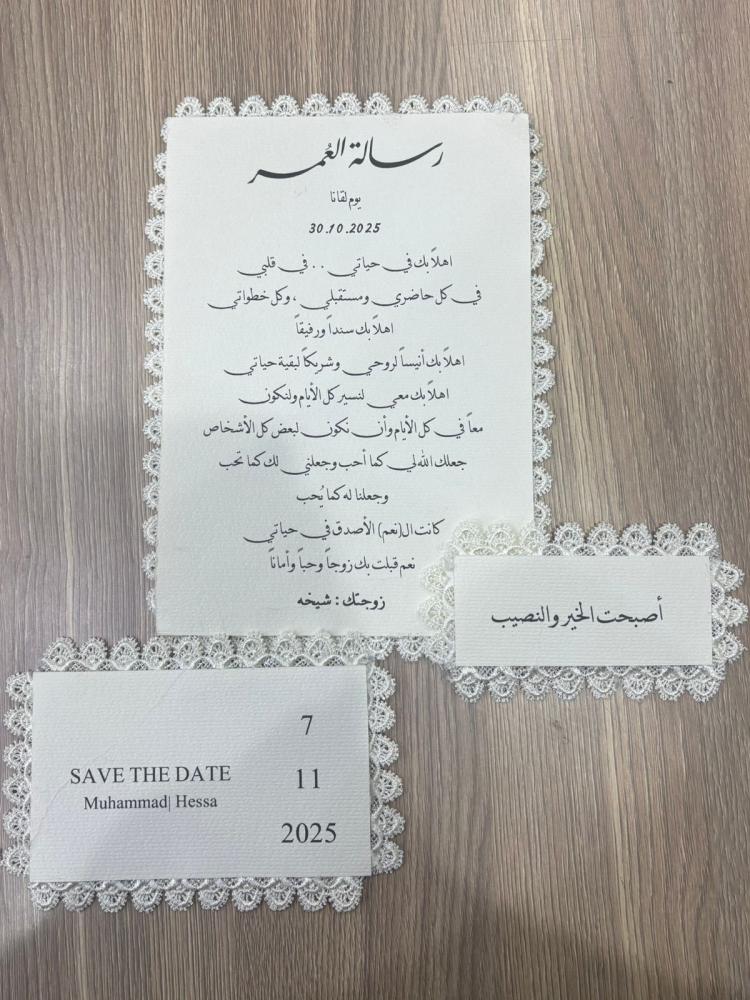 رسالة العُمر
يوم لقانا
30.10.2025
اهلاً بك في حياتي .. في قلبي
في كل حاضري ومستقبلي ، وكل خطواتي
اهلاً بك سنداً ورفيقاً
اهلاً بك أنيساً لروحي وشريكاً لبقية حياتي
اهلاً بك معي لنسير كل الأيام ولنكون
معاً في كل الأيام وأن نكون لبعض كل الأشخاص
جعلك الله لي كما أحب وجعلني لك كما تحب
وجعلنا له كما يُحب
كانت ال(نعم) الأصدق في حياتي
نعم قبلت بك زوجاً وحباً وأماناً
زوجتك : شيخه
أصبحت الخير والنصيب
SAVE THE DATE
Muhammad| Hessa
7
11
2025